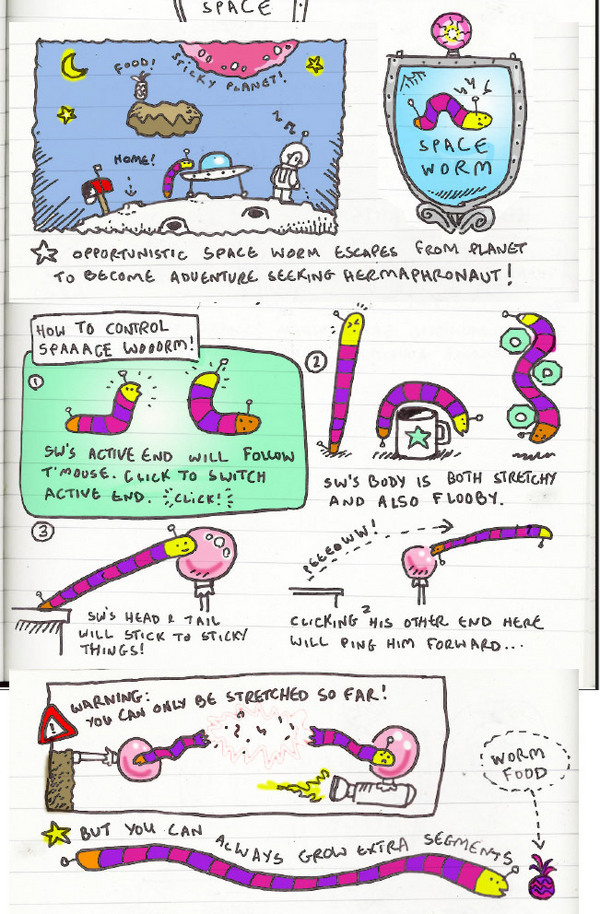 SPACE
FOOD!
STICKY PLANET!
HOME!
SPACE
WORM
OPPORTUNISTIC SPACE WORM ESCAPES FROM PLANET
TO BECOME ADVENTURE SEEKING HERMAPHRONAUT!
HOW TO CONTROL
SPAAAGE WOOORM!
1
SW'S ACTIVE END WILL FOLLOW
T'MOUSE. CLICK TO SWITCH
ACTIVE END. CLICK!
2
SW'S BODY IS BOTH STRETCHY
AND ALSO FLOOBY.
3
SW'S HEAD & TAIL
WILL STICK TO STICKY
THINGS!
PEEEOWW!
CLICKING HIS OTHER END HERE
WILL PING HIM FORWARD...
WARNING:
YOU CAN ONLY BE STRETCHED SO FAR!
!
WORM
FOOD
BUT YOU CAN ALWAYS GROW EXTRA SEGMENTS